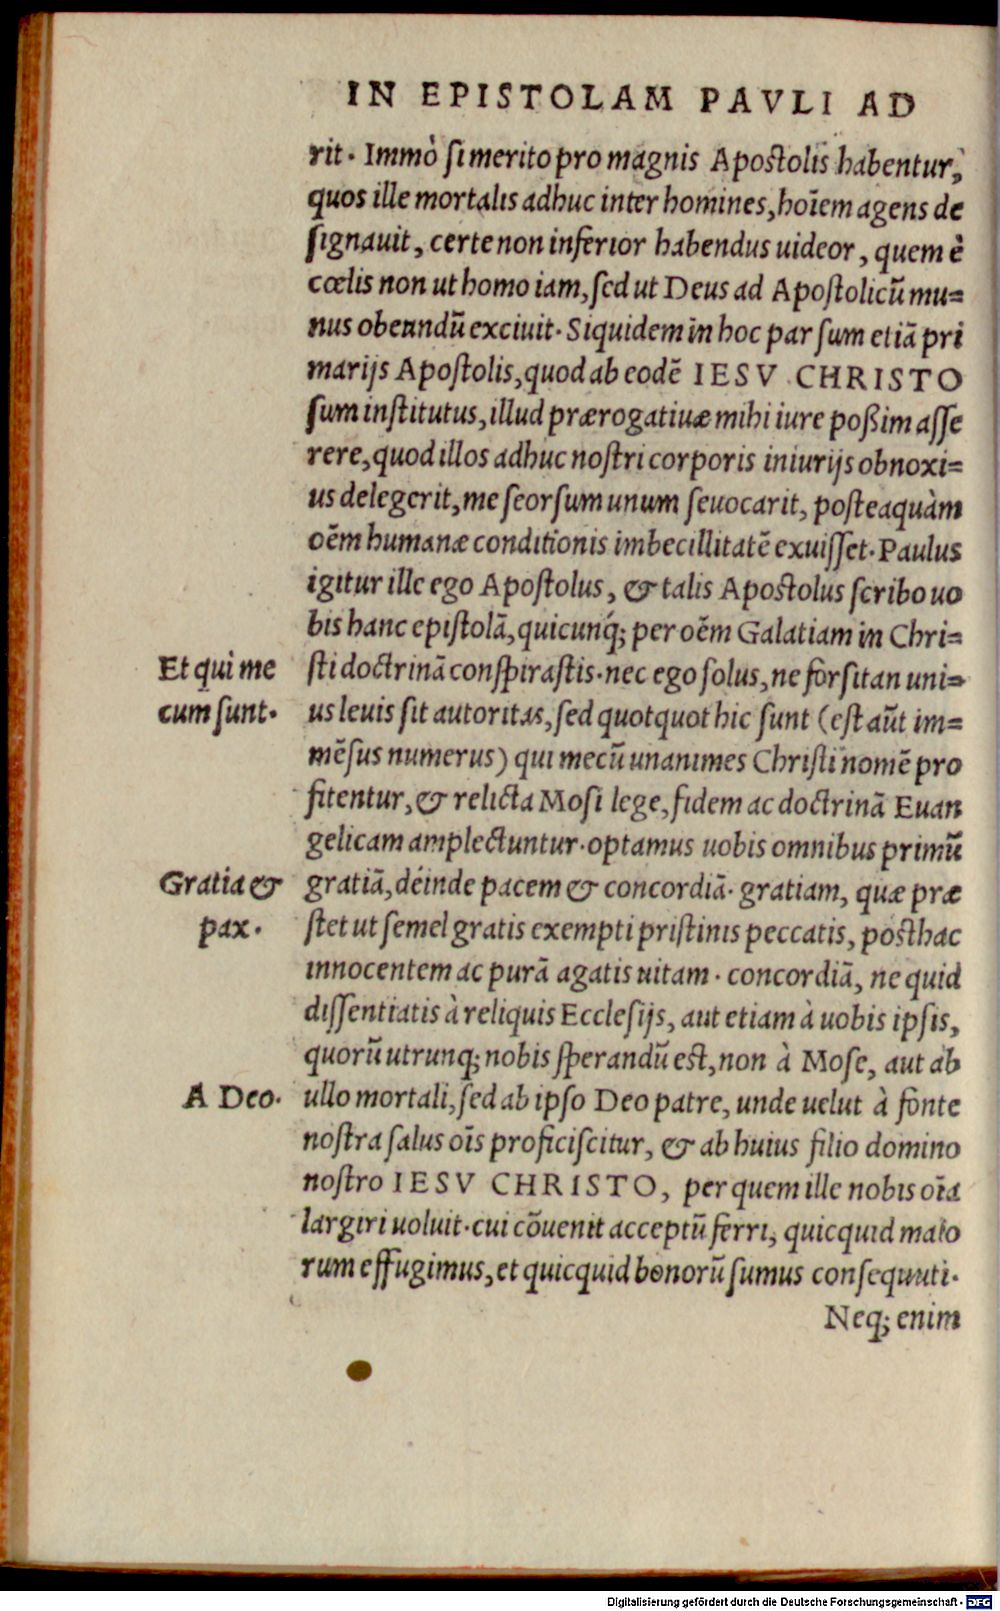 IN EPISTOLAM PAVLI AD
rit. Immò si merito pro magnis Apostolis habentur,
quos ille mortalis adhuc inter homines, hoīem agens de
signauit, certe non inferior habendus uideor, quem è
cœlis non ut homo iam, sed ut Deus ad Apostolicū mu=
nus obeundū exciuit. Siquidem in hoc par sum etiā pri
marijs Apostolis, quod ab eodē IESV CHRISTO
sum institutus, illud prærogatiuæ mihi iure poßim asse
rere, quod illos adhuc nostri corporis iniurijs obnoxi=
us delegerit, me seorsum unum seuocarit, posteaquàm
oēm humanæ conditionis imbecillitatē exuisset. Paulus
igitur ille ego Apostolus, & talis Apostolus scribo uo
bis hanc epistolā, quicunq́; per oēm Galatiam in Chri=
Et qui me
cum sunt.
sti doctrinā conspirastis. nec ego solus, ne forsitan uni=
us leuis sit autoritas, sed quotquot hic sunt (est aūt im=
mēsus numerus) qui mecū unanimes Christi nomē pro
fitentur, & relicta Mosi lege, fidem ac doctrinā Euan
gelicam amplectuntur. optamus uobis omnibus primū
Gratia &
pax.
gratiā, deinde pacem & concordiā. gratiam, quæ præ
stet ut semel gratis exempti pristinis peccatis, posthac
innocentem ac purā agatis uitam. concordiā, ne quid
dissentiatis à reliquis Ecclesijs, aut etiam à uobis ipsis,
quorū utrunq; nobis sperandū est, non à Mose, aut ab
A Deo.
ullo mortali, sed ab ipso Deo patre, unde uelut à fonte
nostra salus oīs proficiscitur, & ab huius filio domino
nostro IESV CHRISTO, per quem ille nobis oīa
largiri uoluit. cui cōuenit acceptū ferri, quicquid malo
rum effugimus, et quicquid bonorū sumus consequuti.
Neq; enim
Digitalisierung gefördert durch die Deutsche Forschungsgemeinschaft - DFG